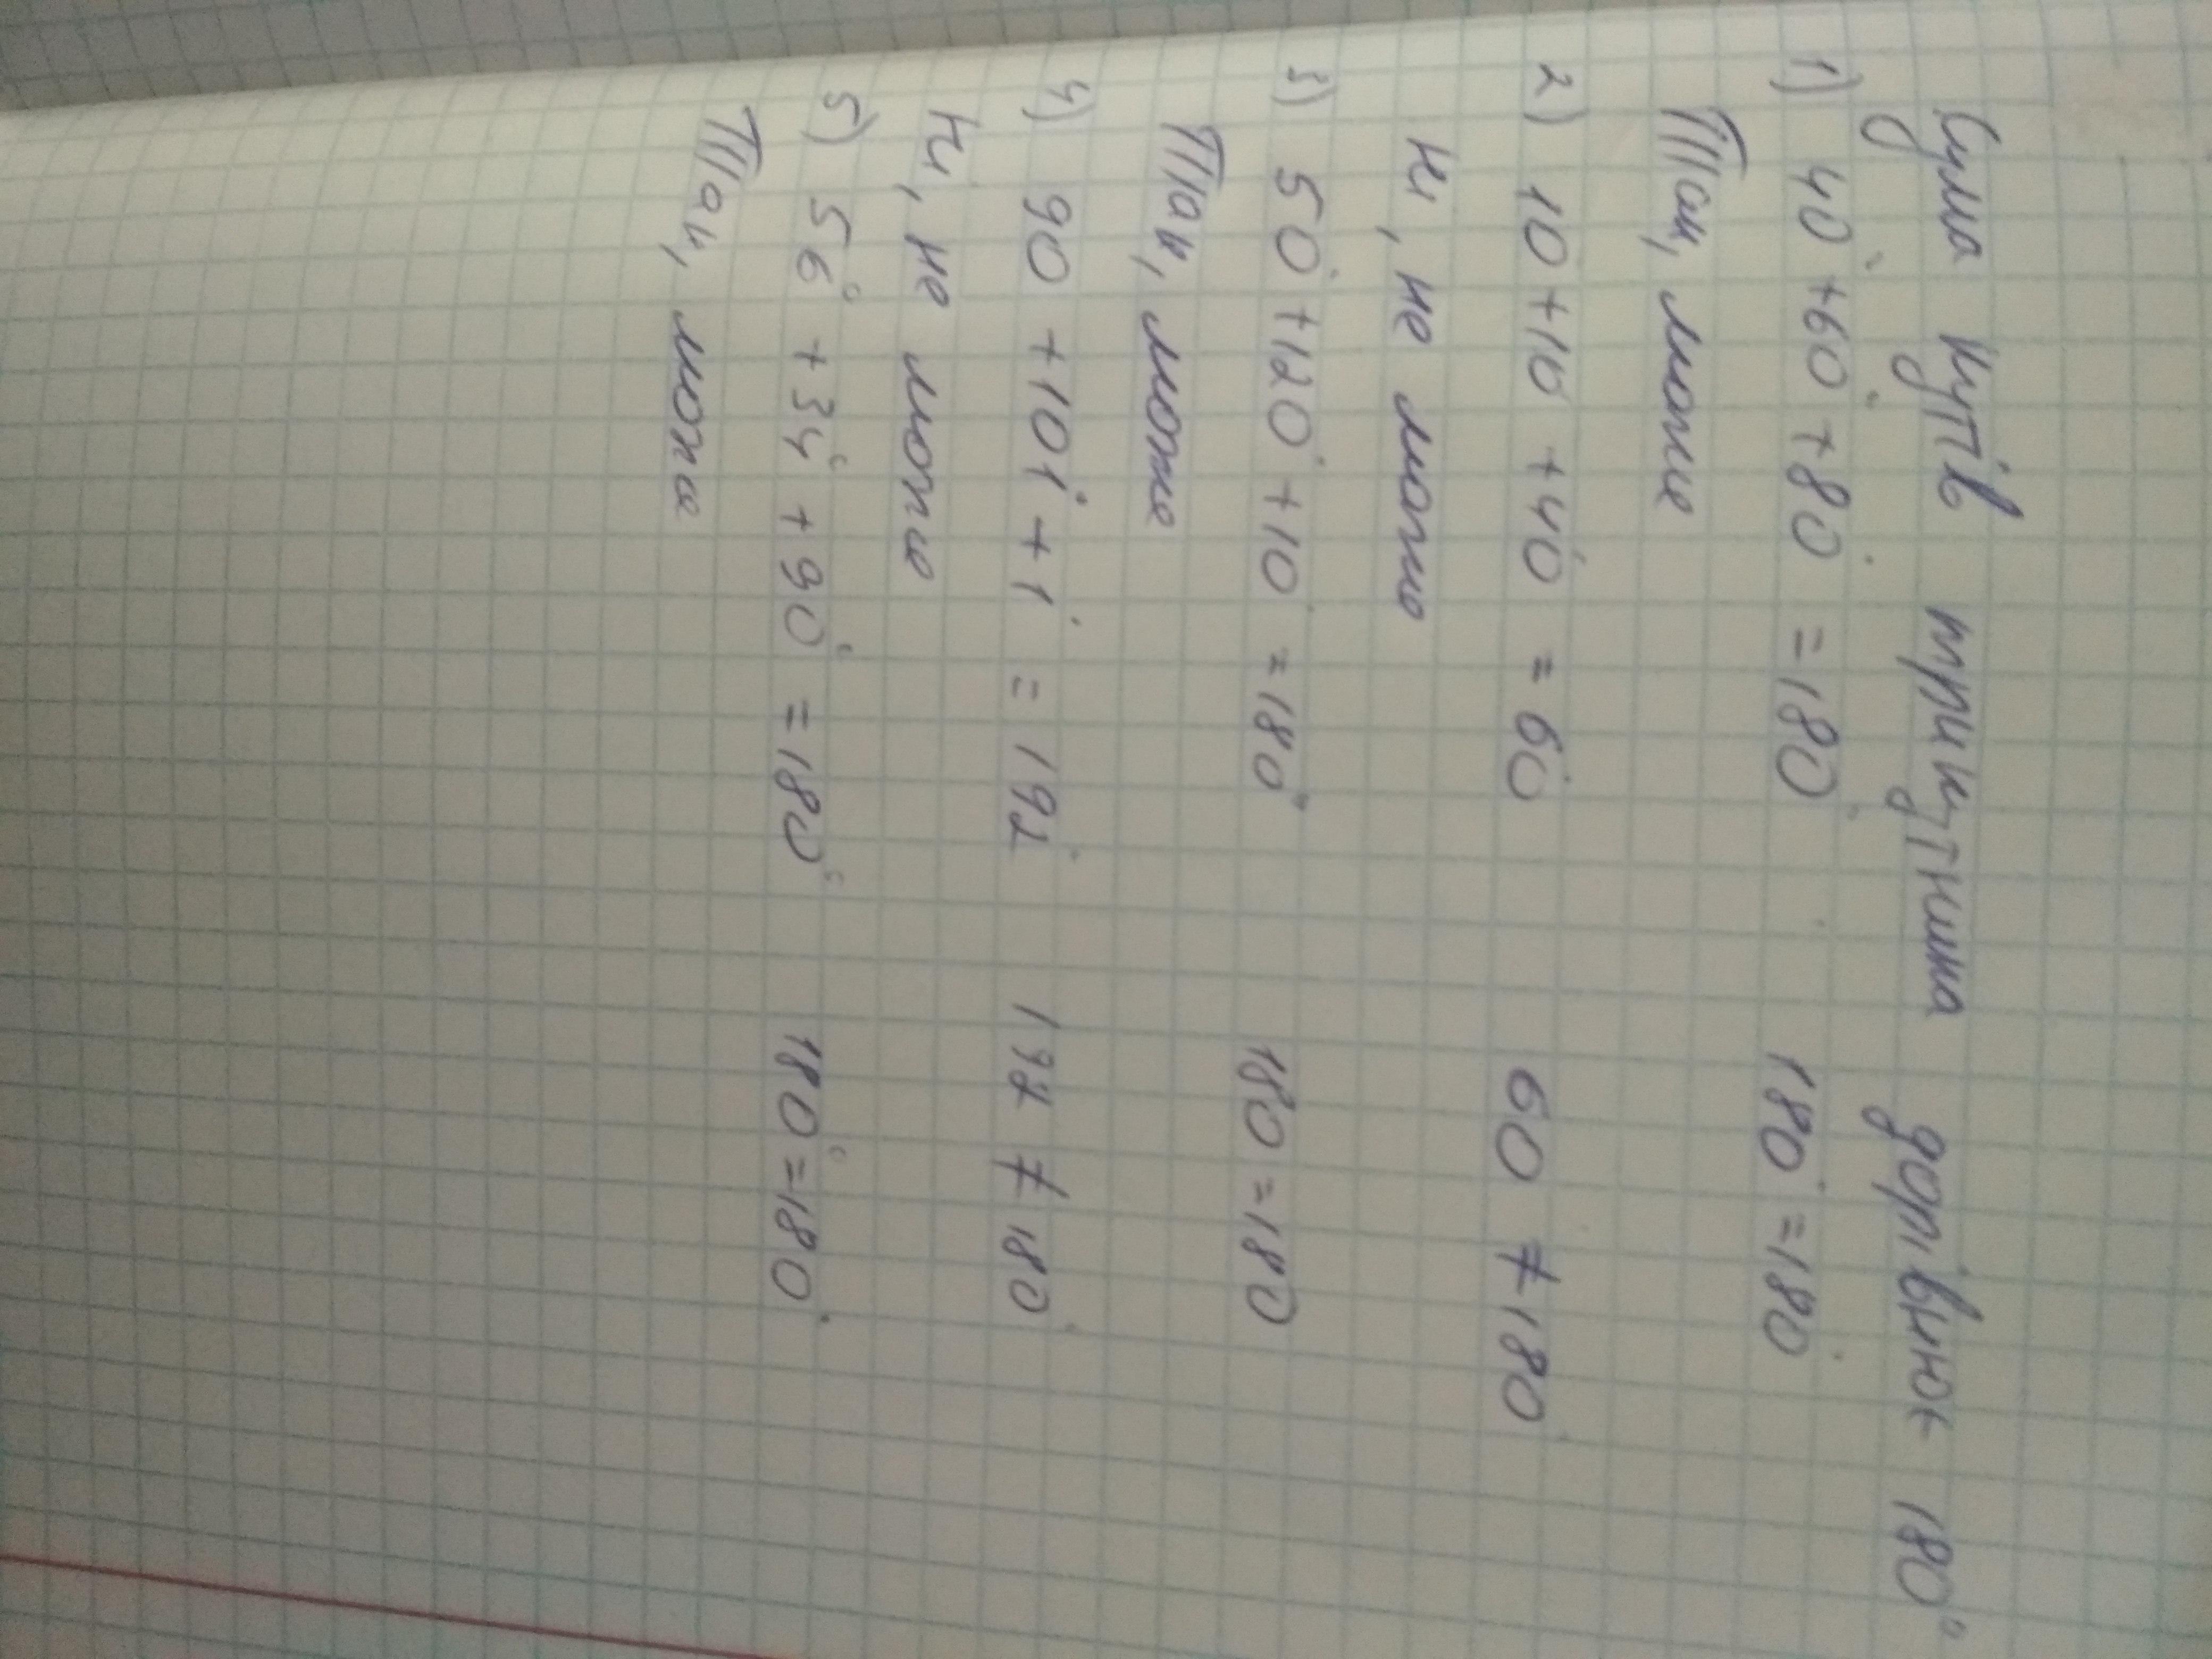 Сума кутів трикутника дорівнює 180°
1) 40° + 60° + 80° = 180° 180° = 180°
Так, може
2) 10 + 10 + 40 = 60 60 ≠ 180°
Ні, не може
3) 50° + 120° + 10 = 180° 180 = 180
Так, може
4) 90 + 101° + 1° = 192° 192 ≠ 180°
Ні, не може
5) 56° + 34° + 90° = 180° 180° = 180°
Так, може